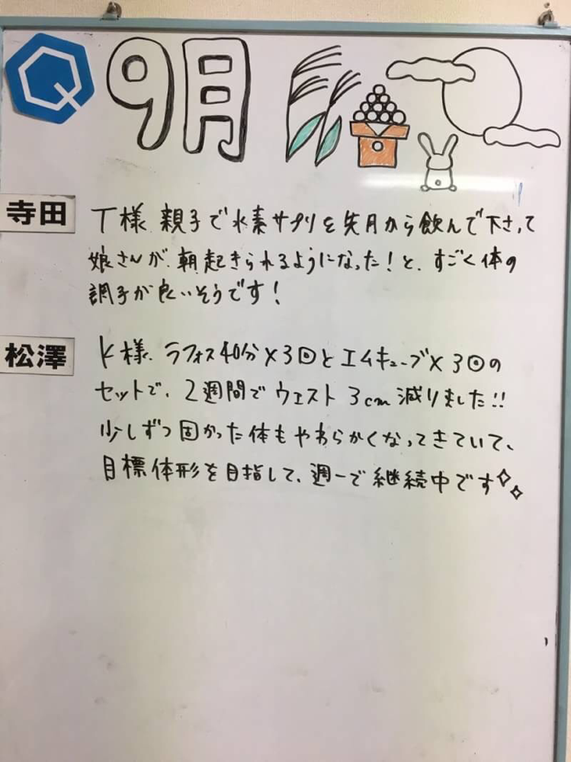 Q 9月
寺田
T様、親子で水素サプリを先月から飲んで下さって
娘さんが、朝起きられるようになった！と、すごく体の
調子が良いそうです！
松澤
K様、ラフォス40分×3回とエムキューブ×3回の
セットで、2週間でウエスト3cm減りました!!
少しずつ固かった体もやわらかくなってきていて、
目標体形を目指して、週一で継続中です